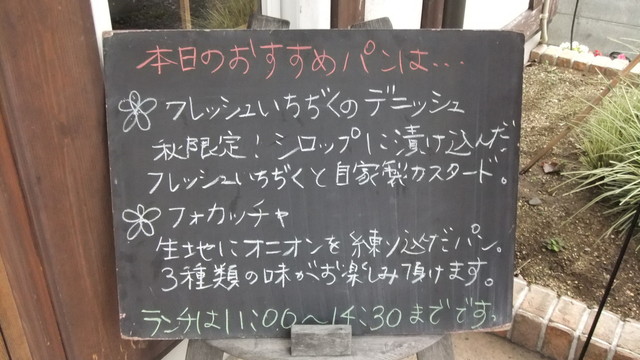 本日のおすすめパンは…
フレッシュいちぢくのデニッシュ
秋限定!シロップに漬け込んだ、
フレッシュいちぢくと自家製カスタード。
フォカッチャ
生地にオニオンを練り込だパン。
3種類の味がお楽しみ頂けます。
ランチは11:00〜14:30までです。